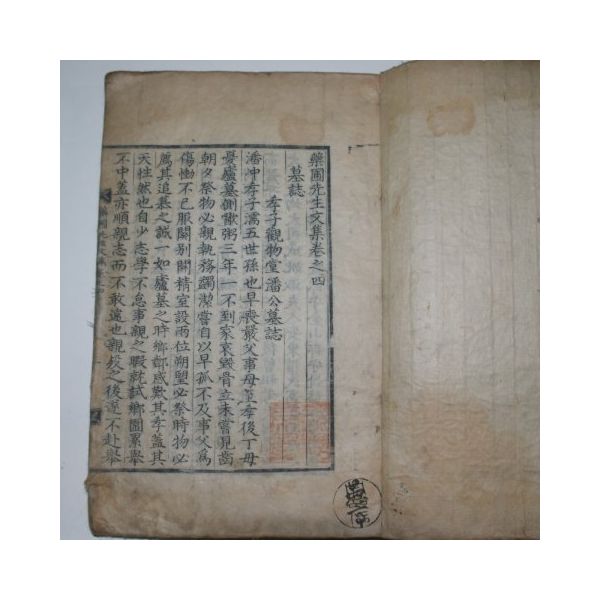 藥圃先生文集卷之四
墓誌
孝子觀物堂潘公墓誌
潘冲孝子濡五世孫也早喪嚴父事母至孝後丁母
憂廬墓側歠粥三年一不到家哀毀骨立未嘗見齒
朝夕祭物必親執務蠲潔嘗自以早孤不及事父爲
傷慟不已服闋別開精室設兩位朔望必祭時物必
薦其追慕之誠一如廬墓之時鄉鄰感歎其孝盖其
天性然也自少志學不怠事親之暇就試鄉圍累舉
不中盖亦順親志而不敢違也親歿之後遂不赴舉